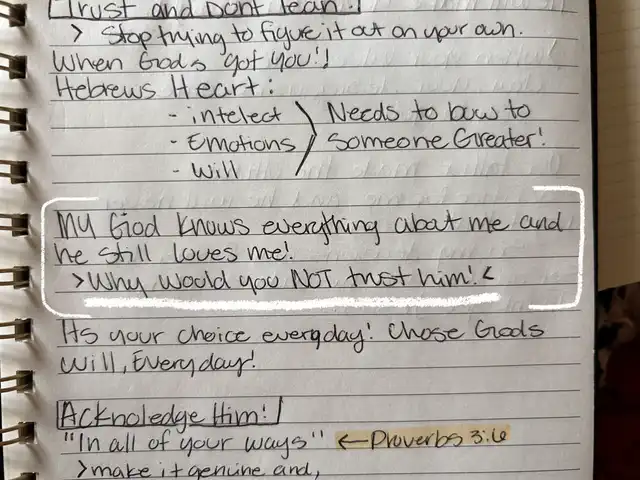 Trust and Dont lean!
> Stop trying to figure it out on your own.
When Gods got you!!
Hebrews Heart:
- intelect
- Emotions
- Will
Needs to bow to
Someone Greater!
My God knows everything about me and
he still loves me!
> Why would you NOT trust him! <
Its your choice everyday! Chose Gods
Will, Everyday!
Acknoledge Him!
"In all of your ways" ← Proverbs 3:6
> make it genuine and,